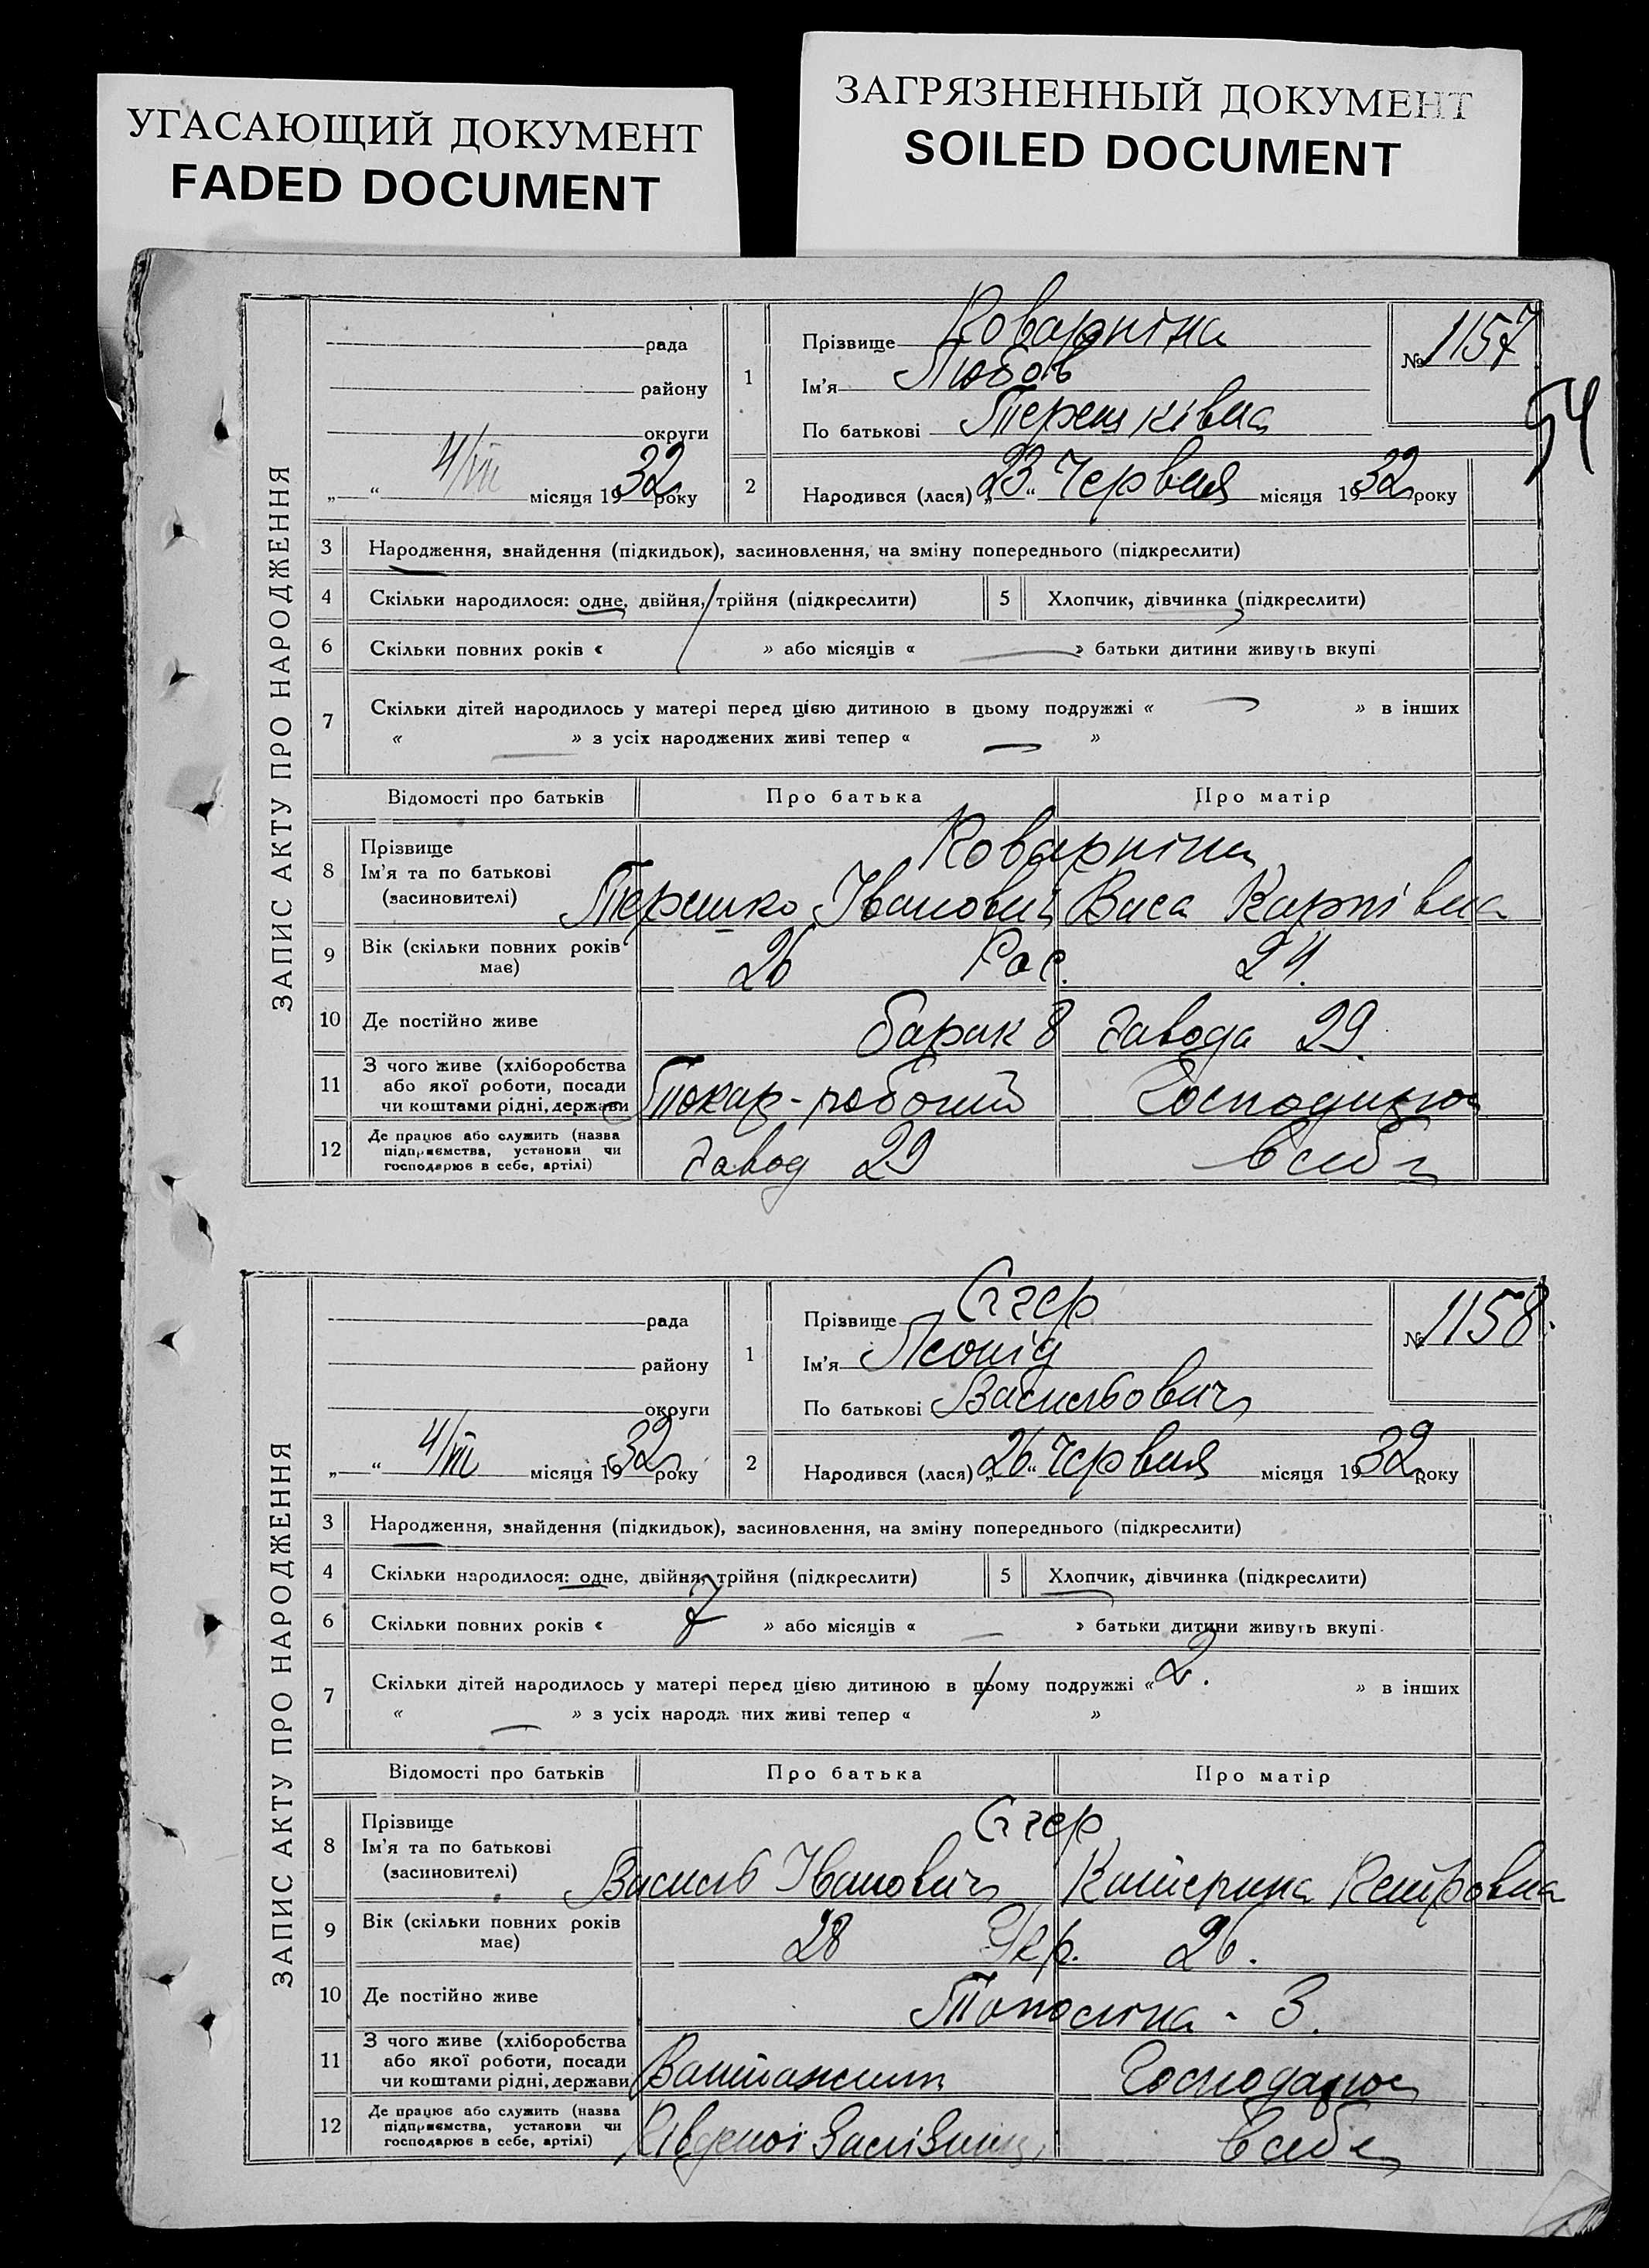 УГАСАЮЩИЙ ДОКУМЕНТ
FADED DOCUMENT
ЗАГРЯЗНЕННЫЙ ДОКУМЕНТ
SOILED DOCUMENT
54
ЗАПИС АКТУ ПРО НАРОДЖЕННЯ
рада
району
округи
„ “ 4/VII місяця 1932 року
1
Прізвище Коварніна
Ім'я Любов
По батькові Терешківна
№ 1157
2 Народився (лася) „23“ Червня місяця 1932 року
3 Народження, знайдення (підкидьок), засиновлення, на зміну попереднього (підкреслити)
4 Скільки народилося: одне, двійня, трійня (підкреслити) 5 Хлопчик, дівчинка (підкреслити)
6 Скільки повних років « » або місяців « — » батьки дитини живуть вкупі
7 Скільки дітей народилось у матері перед цією дитиною в цьому подружжі « — » в інших
« — » з усіх народжених живі тепер « — »
Відомості про батьків Про батька Про матір
8 Прізвище
Ім'я та по батькові
(засиновителі)
Коварніни
Терешко Іванович Васа Карпівна
9 Вік (скільки повних років має) 26 Рос. 24.
10 Де постійно живе барак 8 завода 29.
11 З чого живе (хліборобства
або якої роботи, посади
чи коштами рідні, держави
Токар-робочий Господарює
12 Де працює або служить (назва
підприємства, установи чи
господарює в себе, артілі)
Завод 29 в себе
ЗАПИС АКТУ ПРО НАРОДЖЕННЯ
рада
району
округи
„ “ 4/VII місяця 1932 року
1
Прізвище
Ім'я Леонід
По батькові Васильович
№ 1158.
2 Народився (лася) „26“ Червня місяця 1932 року
3 Народження, знайдення (підкидьок), засиновлення, на зміну попереднього (підкреслити)
4 Скільки народилося: одне, двійня, трійня (підкреслити) 5 Хлопчик, дівчинка (підкреслити)
6 Скільки повних років « 7 » або місяців « — » батьки дитини живуть вкупі
7 Скільки дітей народилось у матері перед цією дитиною в цьому подружжі « 2. » в інших
« — » з усіх народж них живі тепер « »
Відомості про батьків Про батька Про матір
8 Прізвище
Ім'я та по батькові
(засиновителі)
Василь Іванович Катерина Петровна
9 Вік (скільки повних років має) 28 Укр. 26.
10 Де постійно живе Тополіна - 3.
11 З чого живе (хліборобства
або якої роботи, посади
чи коштами рідні, держави
Вантажник Господарює
12 Де працює або служить (назва
підприємства, установи чи
господарює в себе, артілі)
в себе